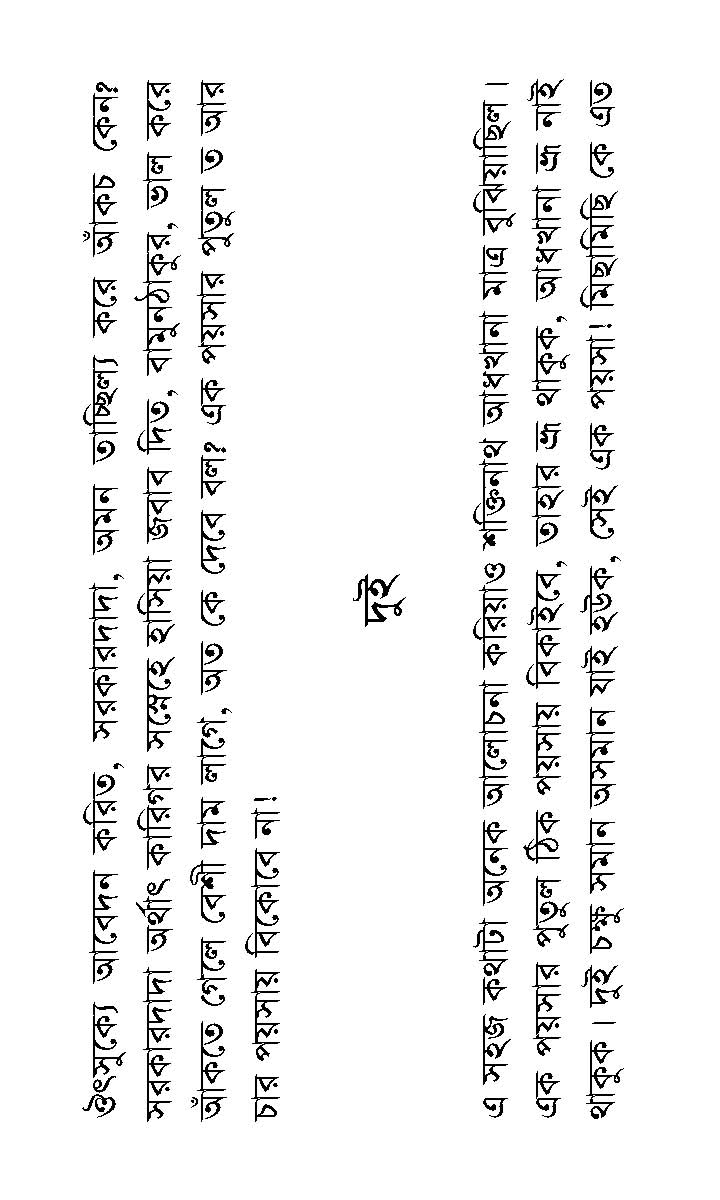 ঔৎসুক্যে আবেদন করিত, সরকারদাদা, অমন তাচ্ছিল্য করে আঁকচ কেন?
সরকারদাদা অর্থাৎ কারিগর সস্নেহে হাসিয়া জবাব দিত, বামুনঠাকুর, ভাল করে
আঁকতে গেলে বেশী দাম লাগে, অত কে দেবে বল? এক পয়সার পুতুল ত আর
চার পয়সায় বিকোবে না!
দুই
এ সহজ কথাটা অনেক আলোচনা করিয়াও শক্তিনাথ আধখানা মাত্র বুঝিয়াছিল।
এক পয়সার পুতুল ঠিক পয়সায় বিকাইবে, তাহার ভ্রূ থাকুক, আধখানা ভ্রূ নাই
থাকুক। দুই চক্ষু সমান অসমান যাই হউক, সেই এক পয়সা! মিছামিছি কে এত